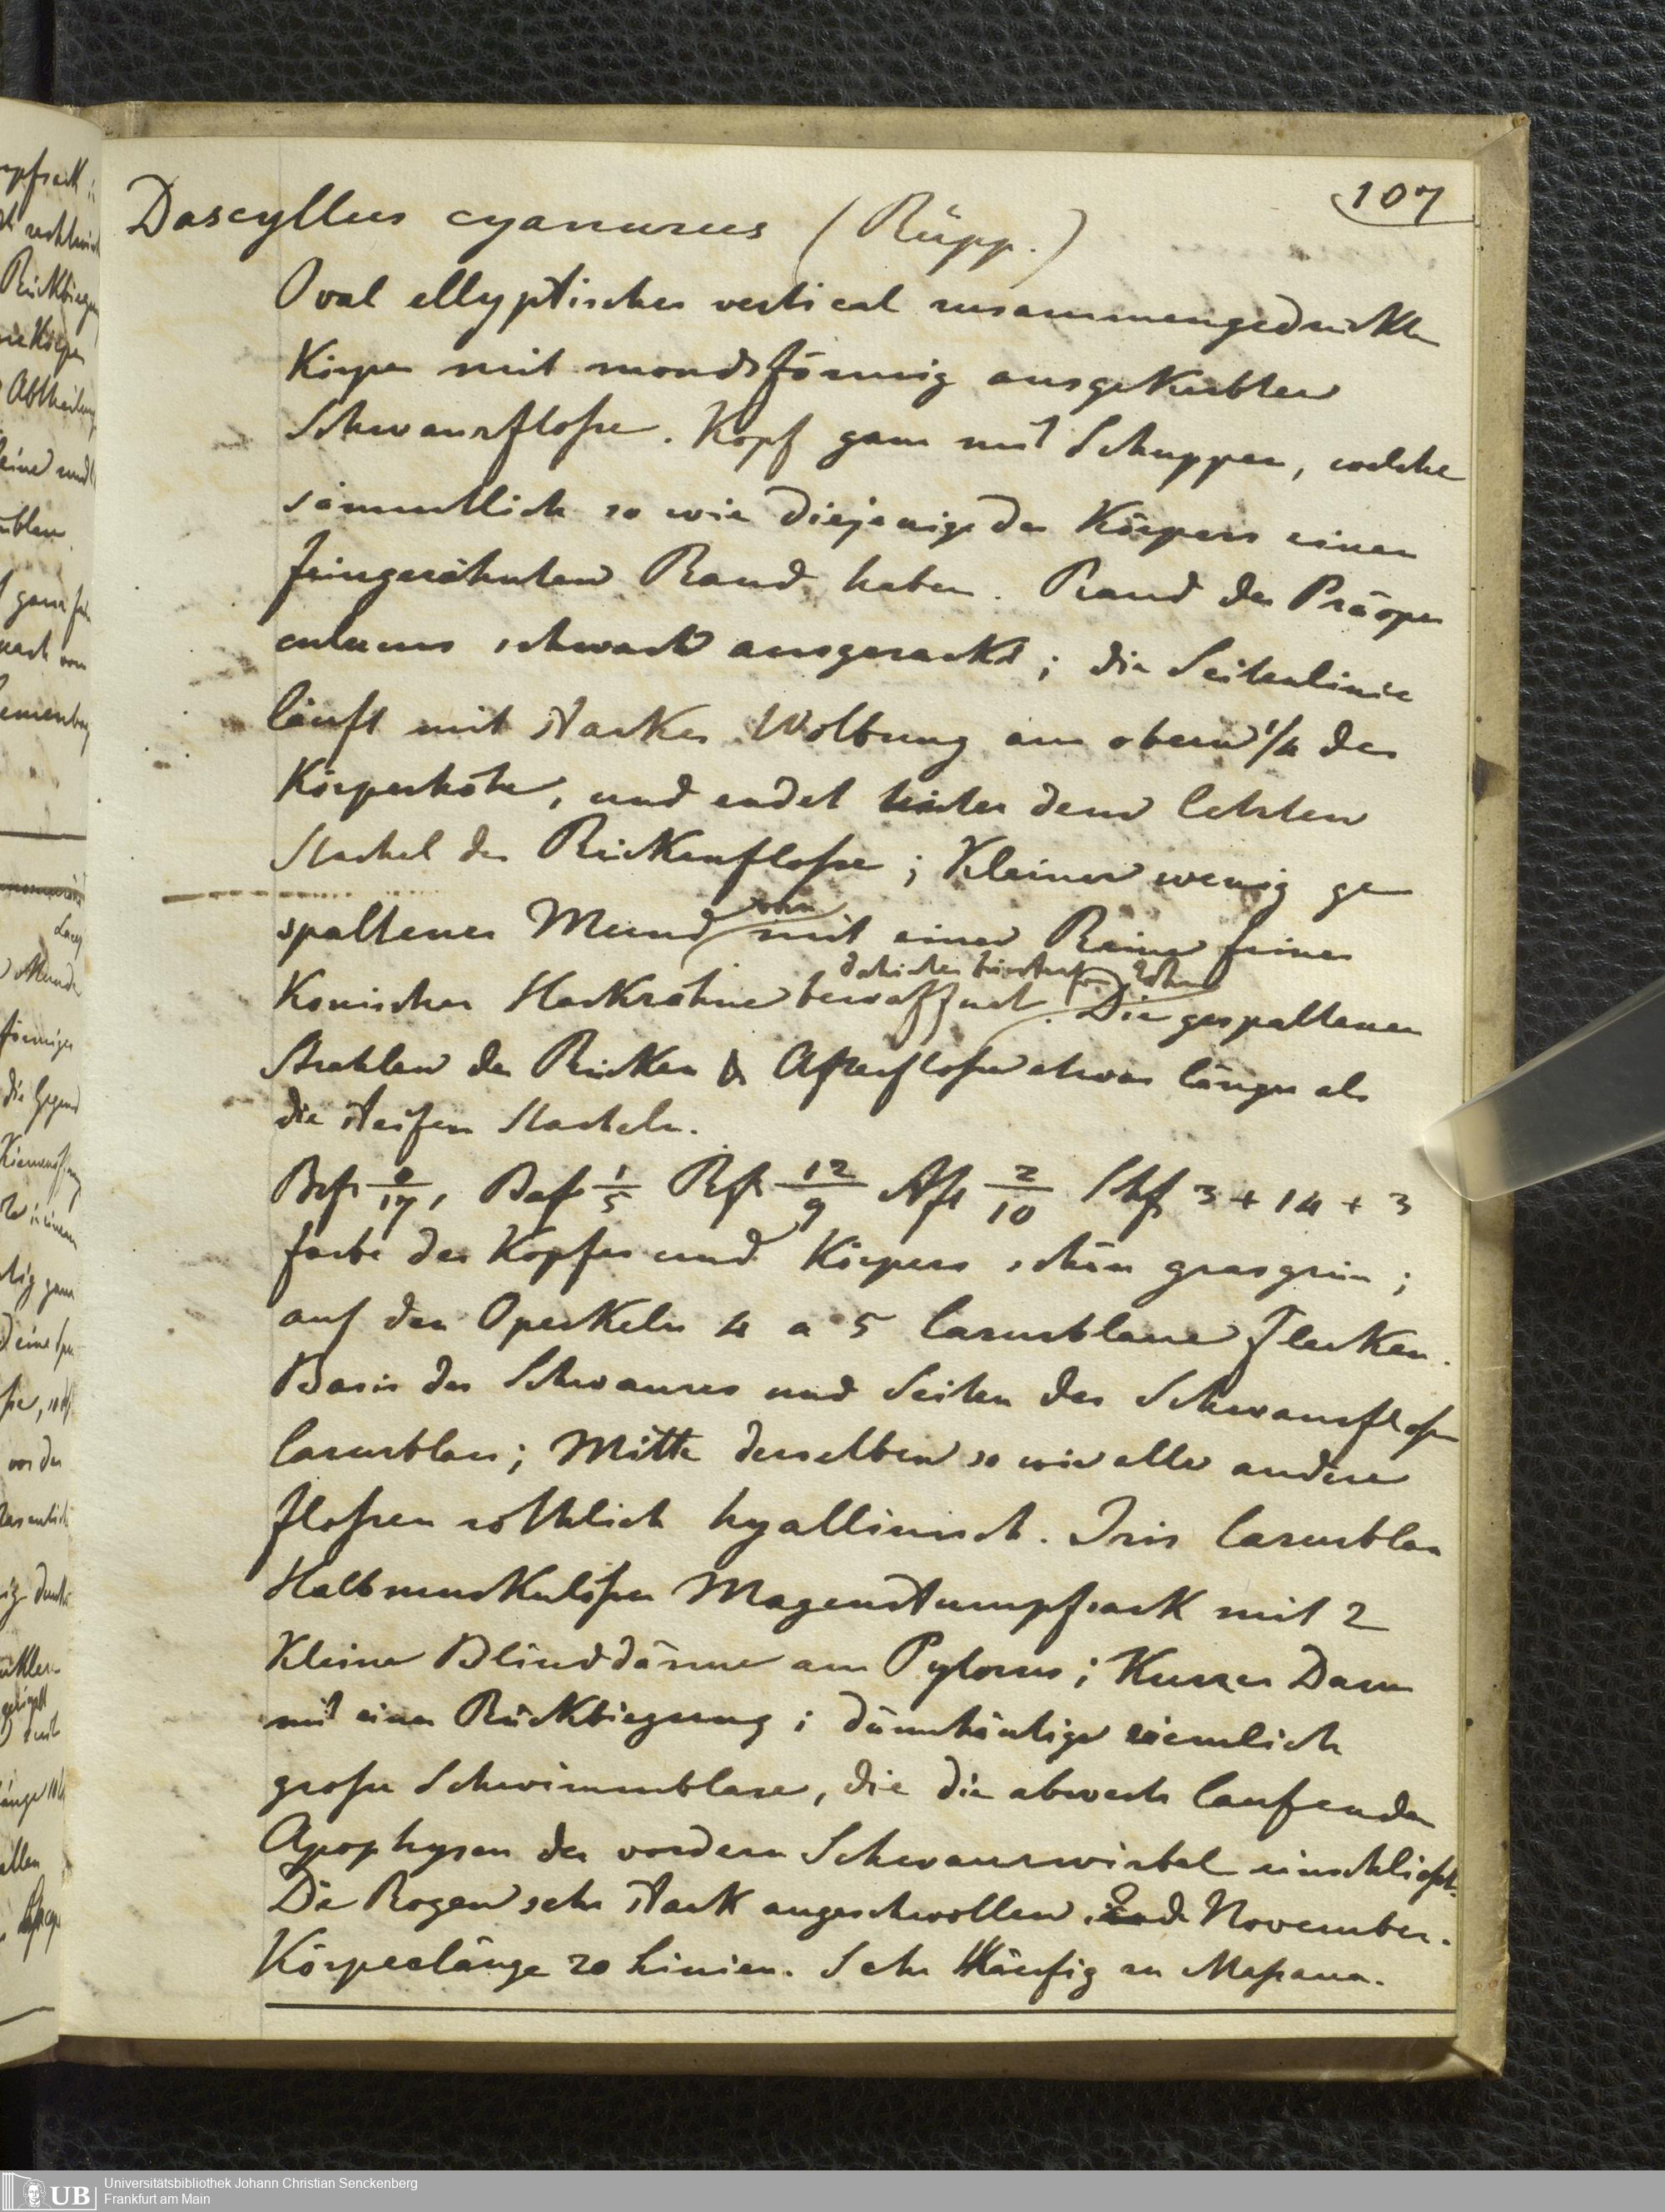 107
Dascyllus cyanurus (Rüpp.)
Oval ellyptischer vertical zusammengedruckter
Körper mit mondsförmig ausgekerbter
Schwanzfloße. Kopf ganz mit Schuppen, welche
sämmtlich so wie diejenige des Körpers einen
feingezähnten Rand haben. Rand des Präoper
culums schwach ausgezackt; die Seitenlinie
läuft mit starker Wölbung am obern 1/4 der
Körperhöhe, und endet hinter dem letzten
Stachel der Rückenfloße; Kleiner wenig ge
spaltener Mund vorn mit einer Reihe feiner
dahinter bürstenf. Zähne
Konischer Hackzähne bewaffnet. Die gespaltenen
Strahlen der Rücken & Afterfloße etwas länger als
die steifen Stacheln.
Brf. 0/17, Baf. 1/5 Rf. 12/9 Aff 2/10 Shf 3 + 14 + 3
farbe des Kopfes und Körpers schön grasgrün;
auf den Operkeln 4 a 5 lasurblaue Flecken.
Basis des Schwanzes und Seiten der Schwanzfloße
lasurblau; Mitte derselben so wie alle andere
floßen röthlich hyallinisch. Iris lasurblau
Halbmuskulöser Magenstumpfsack mit 2
Kleine Blinddärme am Pylorus; Kurzer Darm
mit einer Rückbiegung; dünnhäutige ziemlich
große Schwimmblase, die die abwerts laufenden
Apophysen der vordern Schwanzwirbel einschließt.
Die Rogen sehr stark angeschwollen End November.
Körperlänge 20 Linien. Sehr Häufig zu Maßaua.
Universitätsbibliothek Johann Christian Senckenberg
Frankfurt am Main
UB